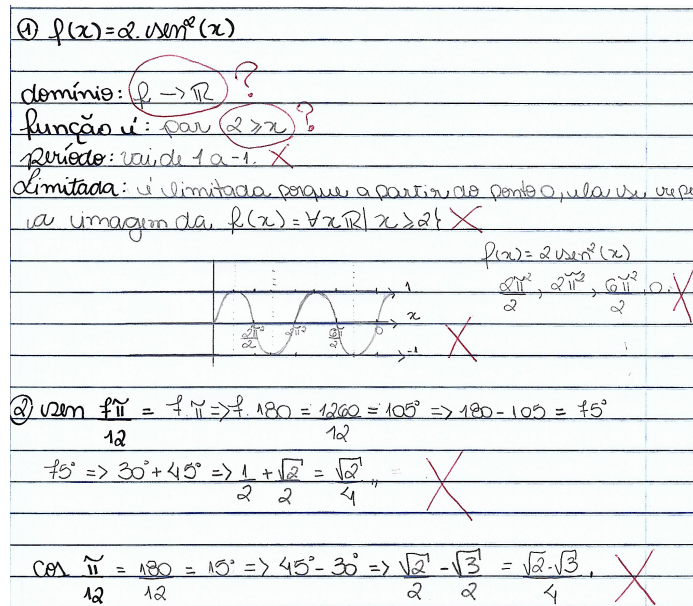 ① f(x) = 2. sen²(x)
domínio: f → ℝ ?
função é: par 2 ≥ x ?
Período: vai de 1 a -1. X
Limitada: é limitada porque a partir do ponto 0, ela se repe
a imagem da f(x) = ∀xℝ| x ≥ 2} X
f(x) = 2 sen²(x)
2π²/2, 2π², 6π²/2, 0. X
1
x
2π²/2 2π² 6π/2 0
-1
X
② sen 7π/12 = 7.π => 7.180 = 1260/12 = 105° => 180 - 105 = 75°
75° => 30° + 45° => 1/2 + √2/2 = √2/4 ,, = X
cos π/12 = 180/12 = 15° => 45° - 30° => √2/2 - √3/2 = √2-√3/4 . X